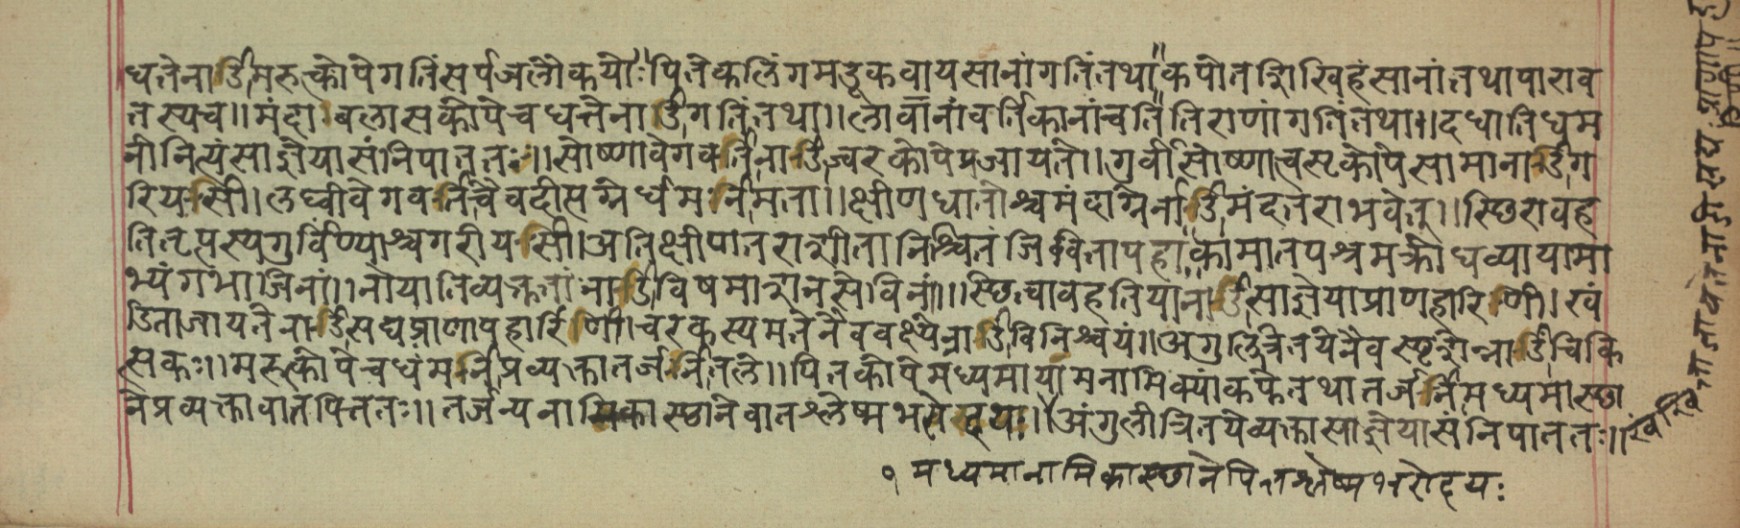 धत्तेनाडीमरुत्कोपेगतिंसर्पजलौकयोः॥पित्तेकलिंगमडूकवायसानांगतिंतथा॥कपोतशिखिहंसानांतथापाराव
तस्यच॥मंदाबलासकोपेचधत्तेनाडीगतिंतथा॥लावानांवर्तिकानांचतित्तिराणांगतिंतथा॥दधातिधम
नीनित्यंसाज्ञेयासंनिपाततः॥सोष्णावेगवर्तिनाडीज्वरकोपेप्रजायते॥गुर्वीसोष्णाचसृकोपेसामानाडीग
रियसी।लघ्वीवेगवर्तिचैवदीप्ताग्नेर्धमनिर्मता॥क्षीणधातोश्चमंदाग्नेर्नाडीमंदतराभवेत्॥स्छिरावह
तितृप्तस्यगुर्विण्याश्चगरीयसी।अतिक्षीणातराशीतानिश्चितंजिवितापहा॥कामातपश्रमक्रोधव्यायामा
भ्यंगभाजिनां॥नोयातिव्यक्ततांनाडीविषमान्नानसेविनां॥स्छित्वावहतियानाडीसाज्ञेयाप्राणहारिणी।खं
डिताजायतेनाडीसद्यप्राणापहारिणी।चरकस्यमतेनैववक्ष्येनाडीविनिश्चयं॥अंगुलित्रितयेनैवस्पृशेन्नाडीचिकि
त्सकः॥मरुत्कोपेचधंमनिप्रव्यक्तातर्जनितले॥पित्तकोपेमध्यमायामनामिक्यांकफेतथातर्जनिमध्यमास्छा
नेप्रव्यक्तावातपित्ततः॥तर्जन्यनामिकास्छानेवातश्लेष्मभवेद्यथा॥अंगुलीत्रितयेव्यक्तासाज्ञेयासंनिपाततः॥
१मध्यमानामिकास्छानेपित्तश्लेष्मभरोदयः